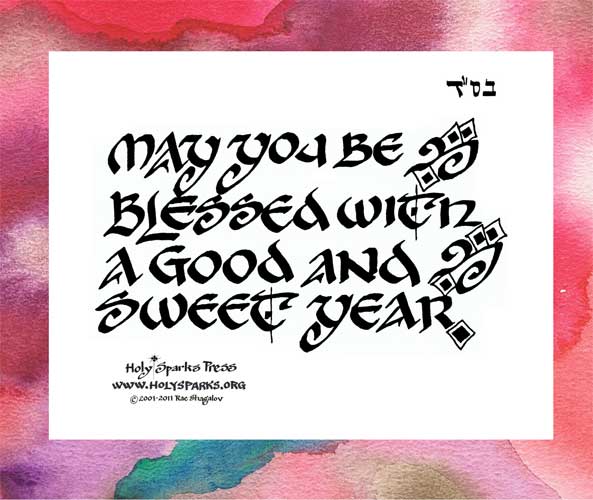 בס"ד
MAY YOU BE
BLESSED WITH
A GOOD AND
SWEET YEAR.
Holy Sparks Press
WWW.HOLYSPARKS.ORG
© 2001-2011 Rae Shagalov